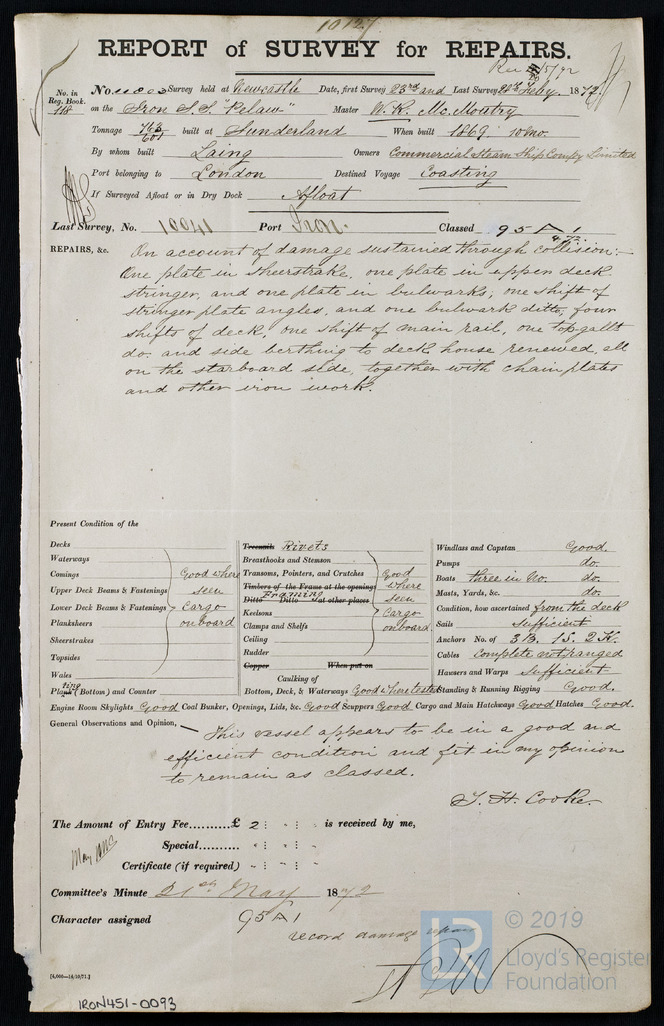 10127
REPORT of SURVEY for REPAIRS.
Rec 21/5/72
No. in Reg. Book. No. 11003 Survey held at Newcastle Date, first Survey 23rd and Last Survey 28th Feby. 1872.
718 on the Iron S.S. "Pelaw" Master W. R. Mc. Moatry
Tonnage 763/601 built at Sunderland When built 1869 10mo.
By whom built Laing Owners Commercial Steam Ship Compy Limited
Port belonging to London Destined Voyage Coasting
If Surveyed Afloat or in Dry Dock Afloat
Last Survey, No. 10041 Port Iron. Classed 95 A 1
4,72.
REPAIRS, &c. On account of damage sustained through collision:—
One plate in sheerstrake, one plate in upper deck
stringer, and one plate in bulwarks; one shift of
stringer plate angles, and one bulwark ditto, four
shifts of deck, one shift of main rail, one topgallt
do. and side berthing to deck house renewed, all
on the starboard side, together with chain plates
and other iron work.
Present Condition of the
Decks
Waterways
Comings
Upper Deck Beams & Fastenings
Lower Deck Beams & Fastenings
Planksheers
Sheerstrakes
Topsides
Wales
Good where
seen
Cargo
onboard
Plating (Bottom) and Counter
Treenails Rivets
Breasthooks and Stemson
Transoms, Pointers, and Crutches
Timbers of the Frame at the openings
Framing
Ditto Ditto at other places
Keelsons
Clamps and Shelfs
Ceiling
Rudder
Good
where
seen
Cargo
onboard.
Copper When put on
Caulking of
Bottom, Deck, & Waterways Good where tested
Windlass and Capstan Good.
Pumps do.
Boats three in No. do.
Masts, Yards, &c. do.
Condition, how ascertained from the deck
Sails Sufficient
Anchors No. of 3 B. 1 S. 2 K.
Cables Complete not ranged
Hawsers and Warps Sufficient
Standing & Running Rigging Good.
Engine Room Skylights Good Coal Bunker, Openings, Lids, &c. Good Scuppers Good Cargo and Main Hatchways Good Hatches Good.
General Observations and Opinion, — This vessel appears to be in a good and
efficient condition and fit in my opinion
to remain as classed.
T. H. Cooke
The Amount of Entry Fee.......... £ 2 : " : " is received by me,
Special.......... " : " : "
Certificate (if required) " : " : "
Committee's Minute 21st May 1872
Character assigned 95 A 1
record damage repairs
[4,000—14/10/71.]
IRON451-0093
© 2019
Lloyd's Register
Foundation
LR